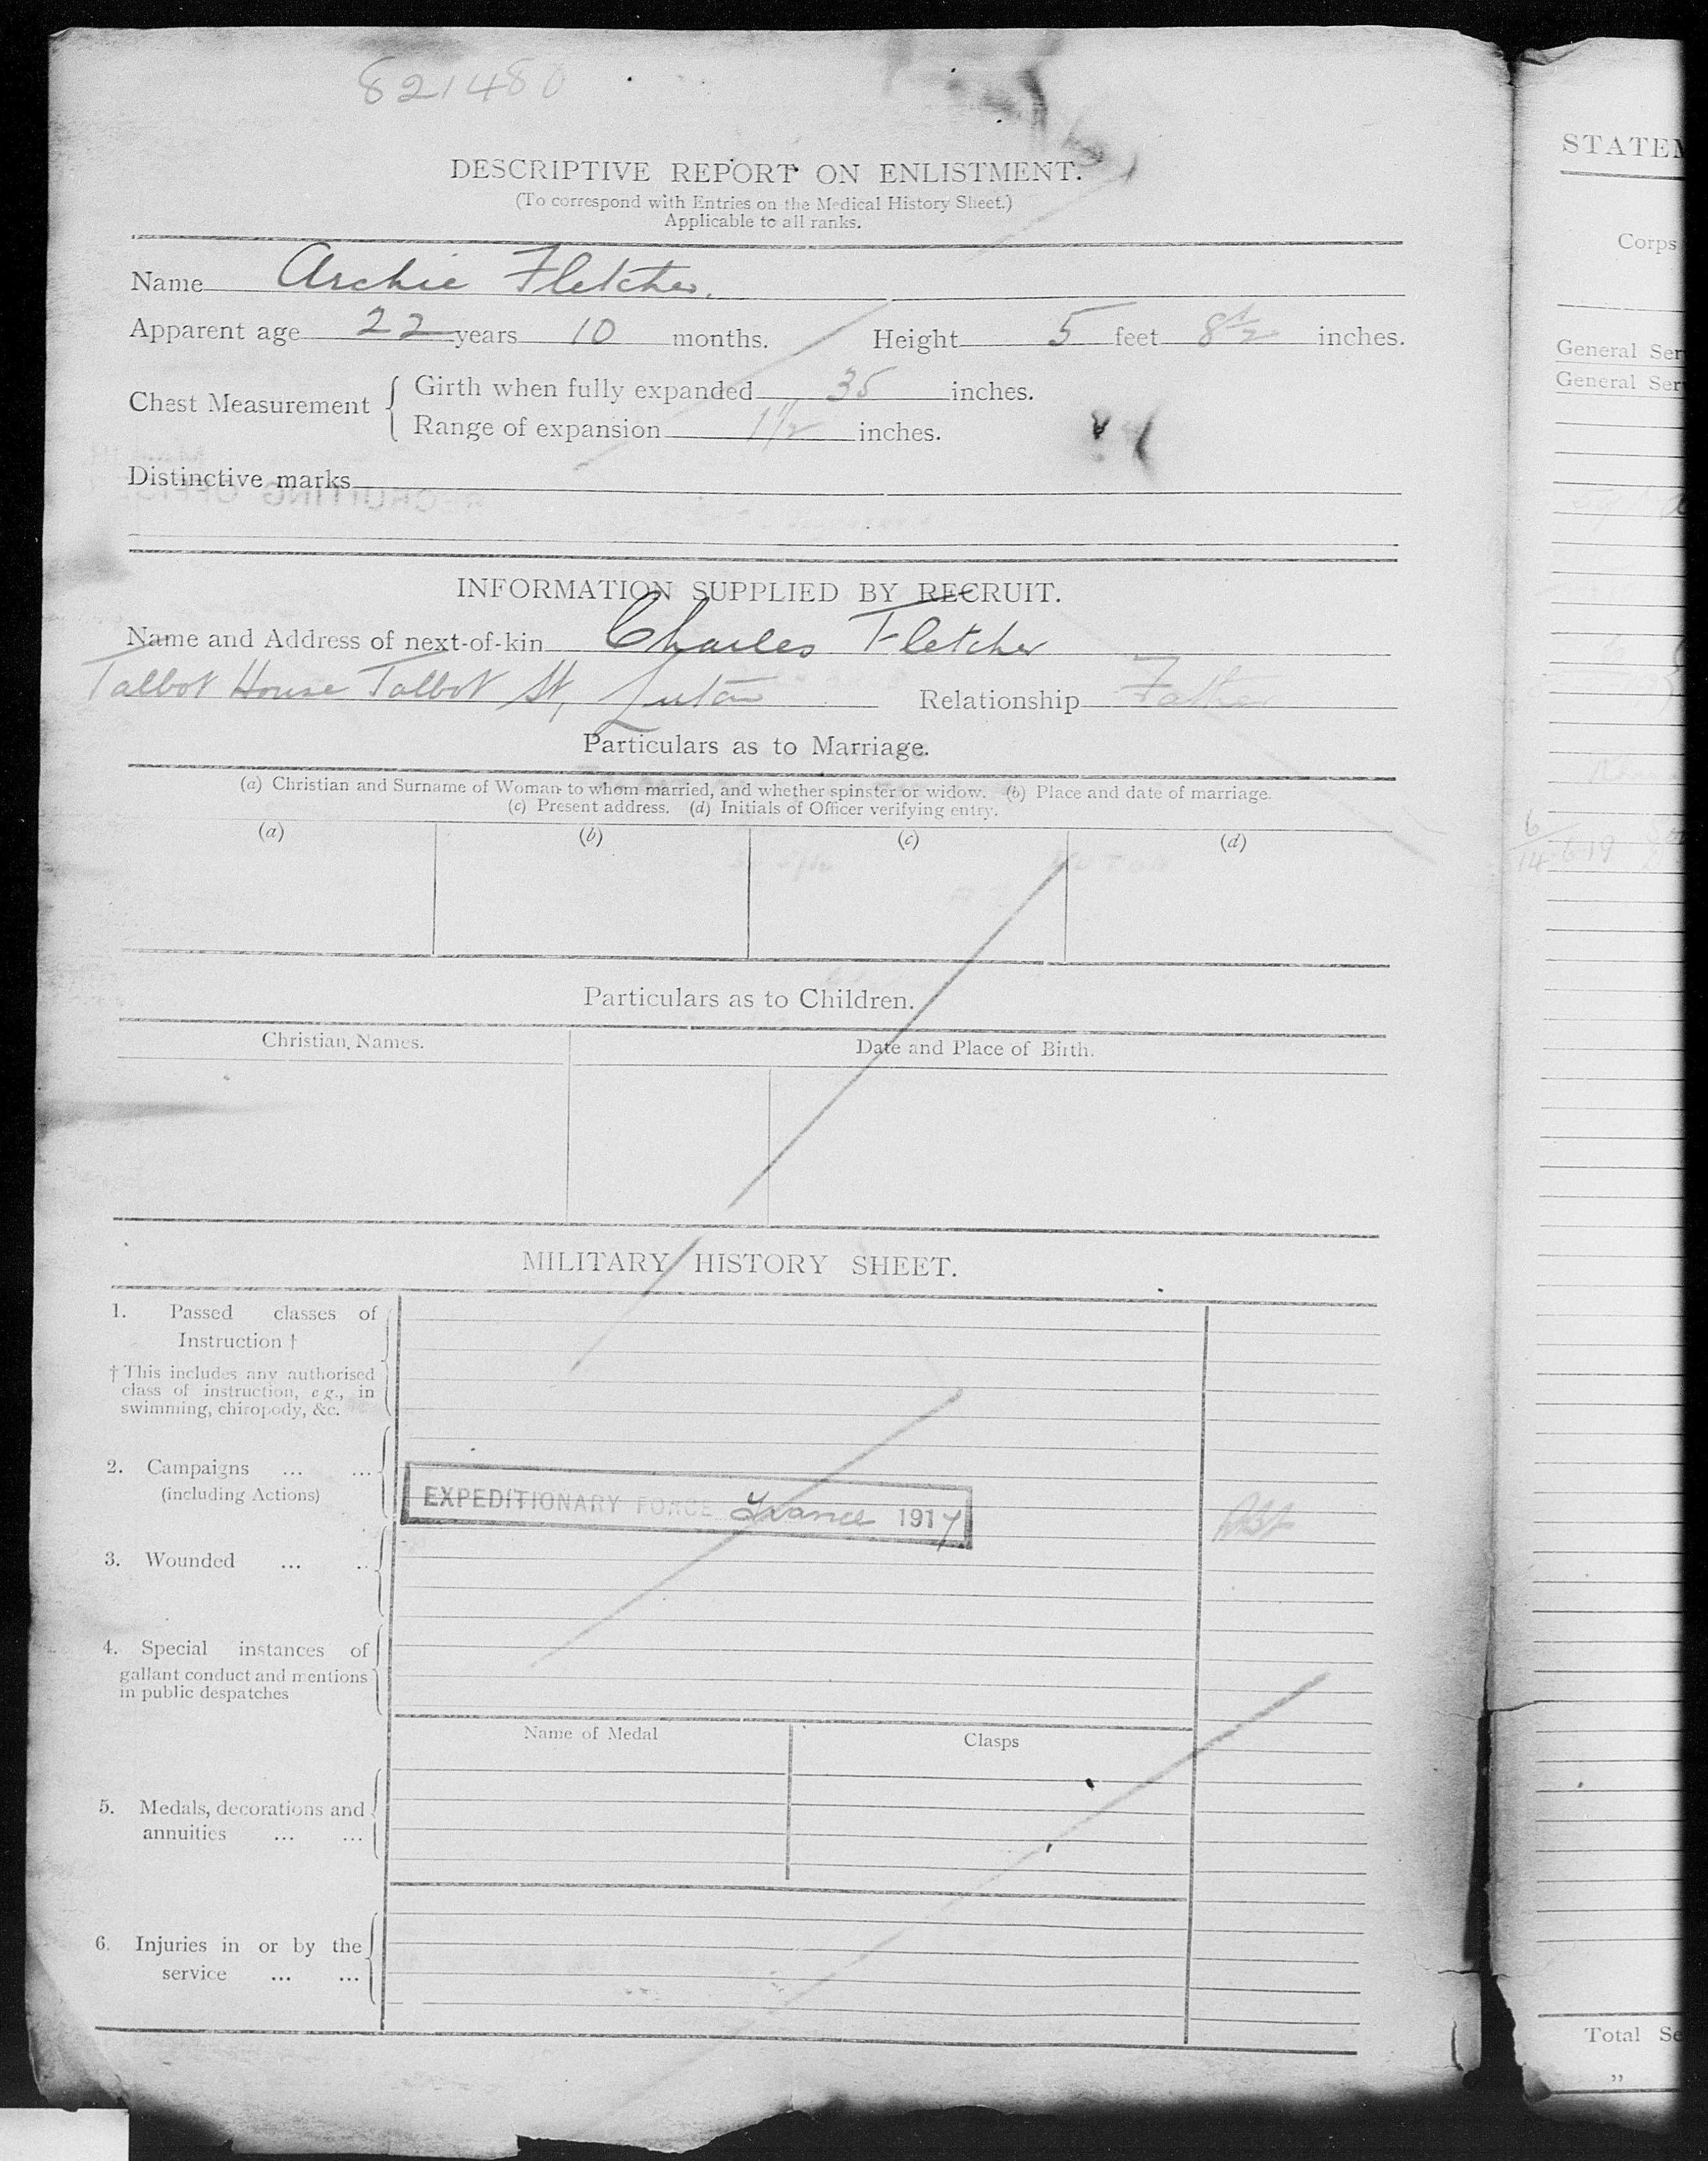 821480
DESCRIPTIVE REPORT ON ENLISTMENT.
(To correspond with Entries on the Medical History Sheet.)
Applicable to all ranks.
Name Archie Fletcher.
Apparent age 22 years 10 months. Height 5 feet 8½ inches.
Chest Measurement { Girth when fully expanded 35 inches.
Range of expansion 1½ inches.
Distinctive marks
INFORMATION SUPPLIED BY RECRUIT.
Name and Address of next-of-kin Charles Fletcher
Talbot House Talbot St, Luton Relationship Father
Particulars as to Marriage.
(a) Christian and Surname of Woman to whom married, and whether spinster or widow. (b) Place and date of marriage.
(c) Present address. (d) Initials of Officer verifying entry.
(a) (b) (c) (d)
Particulars as to Children.
Christian Names. Date and Place of Birth.
MILITARY HISTORY SHEET.
1. Passed classes of
Instruction †
† This includes any authorised
class of instruction, e.g., in
swimming, chiropody, &c.
2. Campaigns ... ...
(including Actions)
EXPEDITIONARY FORCE France 1917
3. Wounded ... ..
4. Special instances of
gallant conduct and mentions
in public despatches
Name of Medal Clasps
5. Medals, decorations and
annuities ... ...
6. Injuries in or by the
service ... ...
STATEM
Corps
General Ser
General Ser
6/14 6 19
Total Se
"